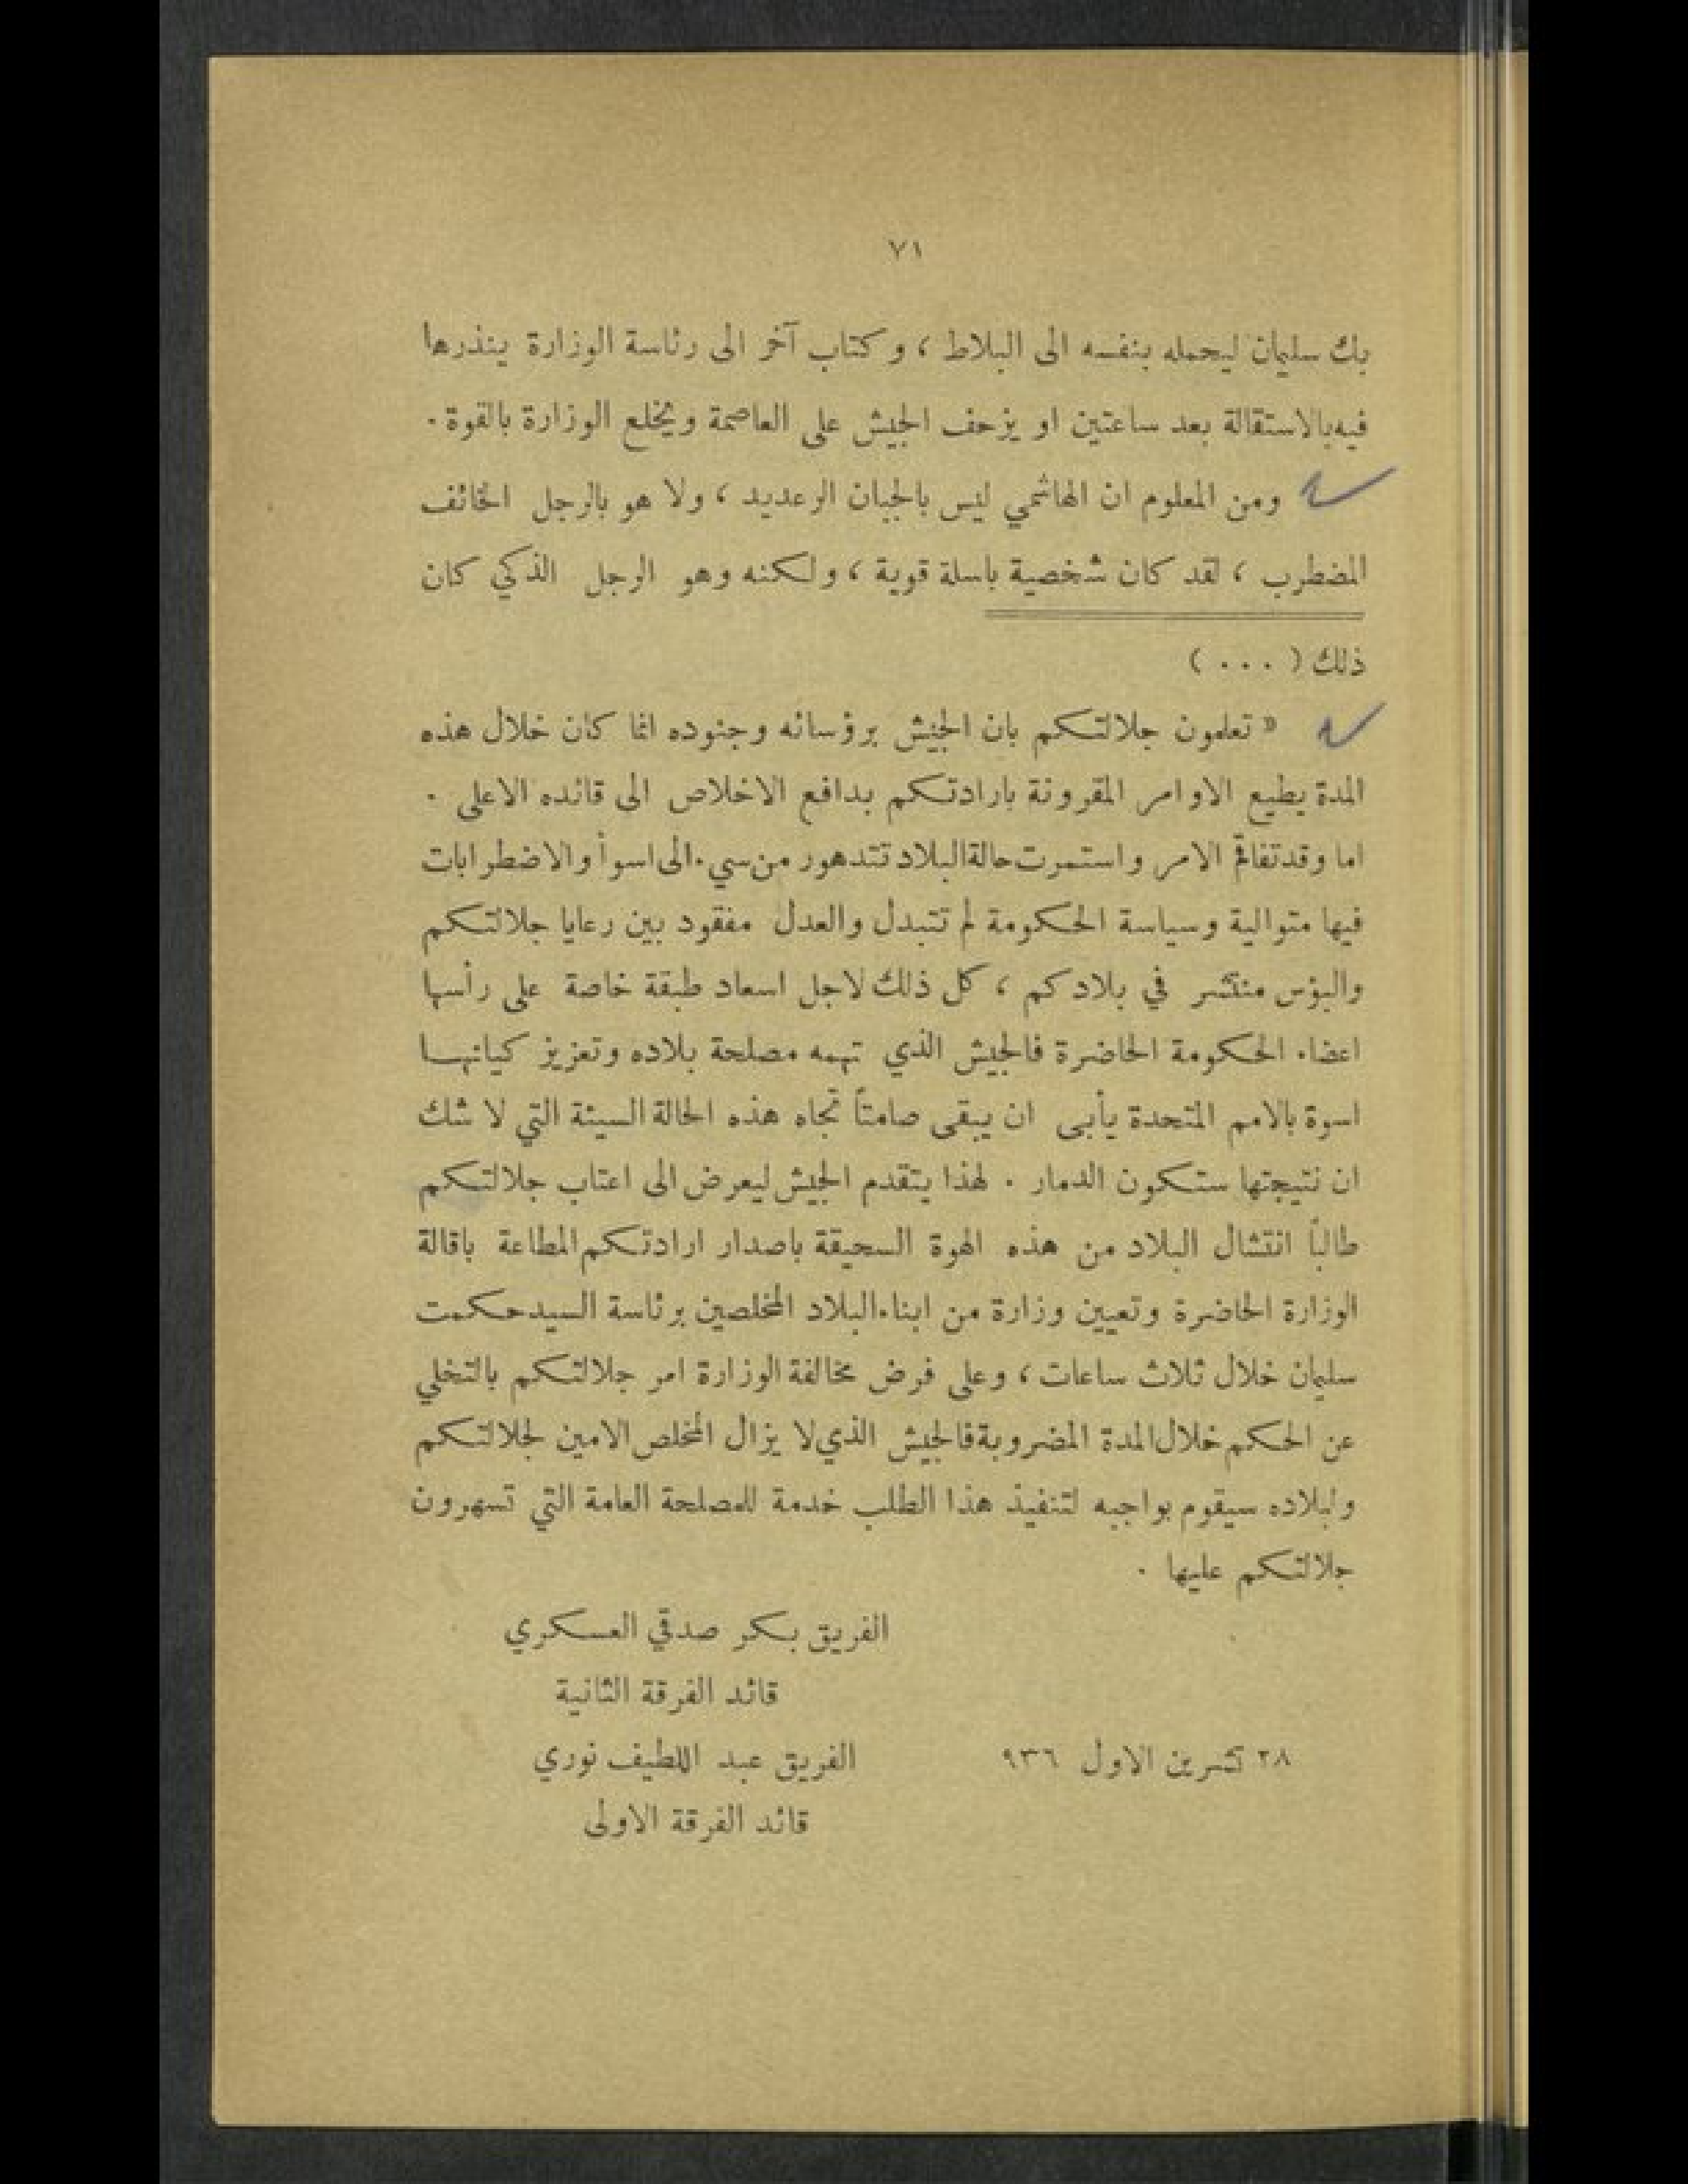 ٧١
بك سليمان ليحمله بنفسه الى البلاط ، وكتاب آخر الى رئاسة الوزارة ينذرها
فيه بالاستقالة بعد ساعتين او يزحف الجيش على العاصمة ويخلع الوزارة بالقوة .
ومن المعلوم ان الهاشمي ليس بالجبان الرعديد ، ولا هو بالرجل الخائف
المضطرب ، لقد كان شخصية باسلة قوية ، ولكنه وهو الرجل الذكي كان
ذلك ( ... )
« تعلمون جلالتكم بان الجيش برؤسائه وجنوده انما كان خلال هذه
المدة يطيع الاوامر المقرونة بارادتكم بدافع الاخلاص الى قائده الاعلى .
اما وقد تفاقم الامر واستمرت حالة البلاد تتدهور من سيء الى اسوأ والاضطرابات
فيها متوالية وسياسة الحكومة لم تتبدل والعدل مفقود بين رعايا جلالتكم
والبؤس منتشر في بلادكم ، كل ذلك لاجل اسعاد طبقة خاصة على رأسها
اعضاء الحكومة الحاضرة فالجيش الذي تهمه مصلحة بلاده وتعزيز كيانها
اسوة بالامم المتحدة يأبى ان يبقى صامتاً تجاه هذه الحالة السيئة التي لا شك
ان نتيجتها ستكون الدمار . لهذا يتقدم الجيش ليعرض الى اعتاب جلالتكم
طالباً انتشال البلاد من هذه الهوة السحيقة باصدار ارادتكم المطاعة باقالة
الوزارة الحاضرة وتعيين وزارة من ابناء البلاد المخلصين برئاسة السيد حكمت
سليمان خلال ثلاث ساعات ، وعلى فرض مخالفة الوزارة امر جلالتكم بالتخلي
عن الحكم خلال المدة المضروبة فالجيش الذي لا يزال المخلص الامين لجلالتكم
ولبلاده سيقوم بواجبه لتنفيذ هذا الطلب خدمة للمصلحة العامة التي تسهرون
جلالتكم عليها .
الفريق بكر صدقي العسكري
قائد الفرقة الثانية
٢٨ تشرين الاول ٩٣٦ الفريق عبد اللطيف نوري
قائد الفرقة الاولى